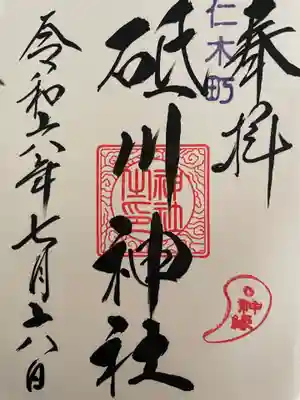 奉拝
仁木町
砥川神社
令和六年七月十八日